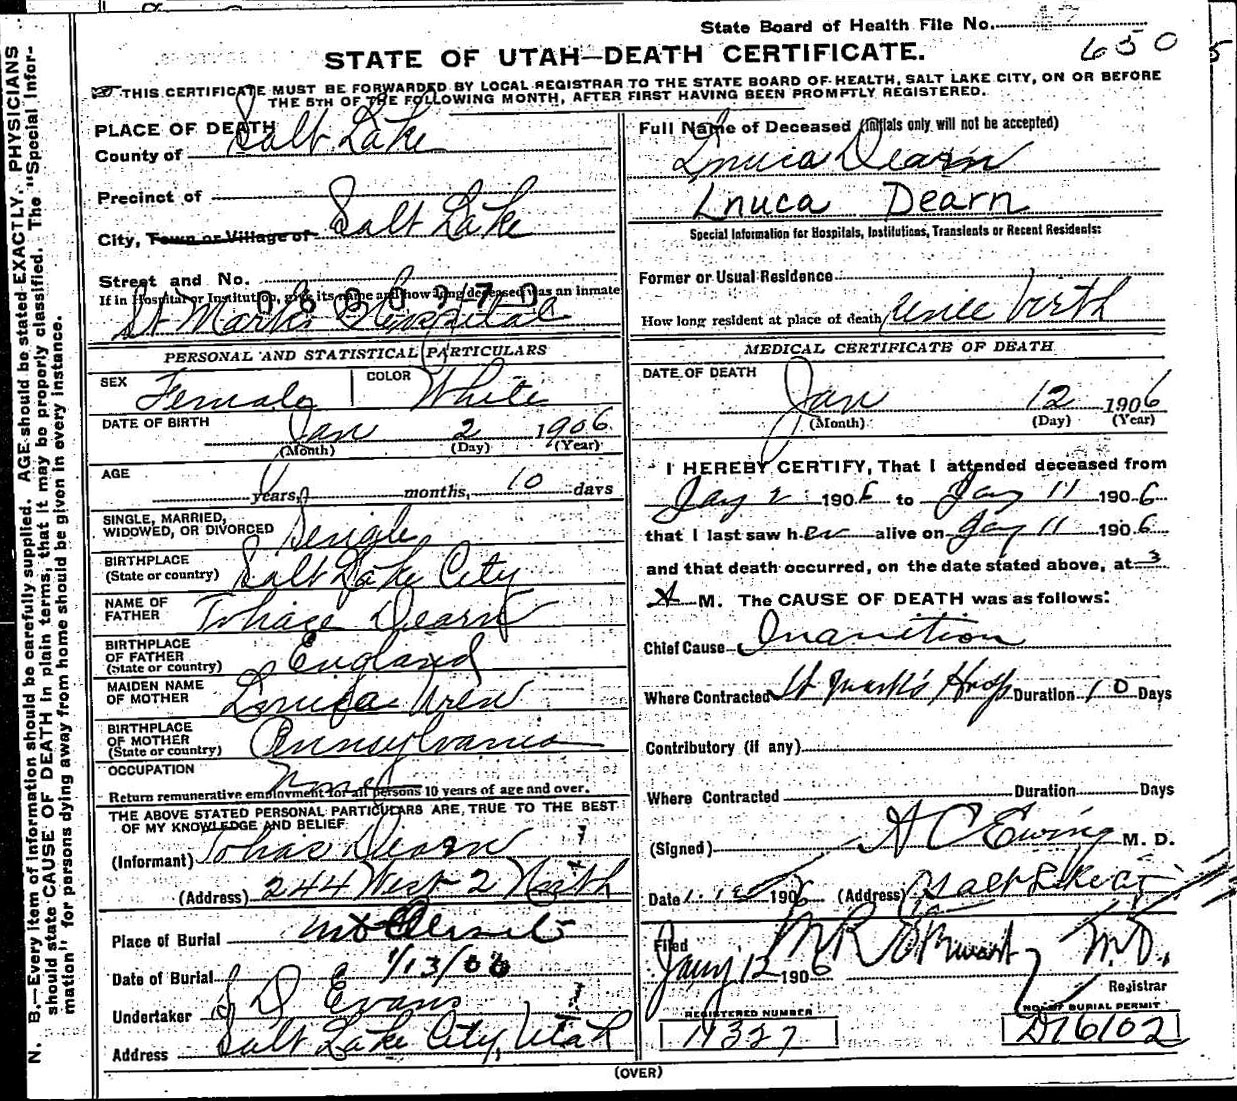 State Board of Health File No.
650
STATE OF UTAH—DEATH CERTIFICATE.
THIS CERTIFICATE MUST BE FORWARDED BY LOCAL REGISTRAR TO THE STATE BOARD OF HEALTH, SALT LAKE CITY, ON OR BEFORE
THE 5TH OF THE FOLLOWING MONTH, AFTER FIRST HAVING BEEN PROMPTLY REGISTERED.
N. B.—Every item of information should be carefully supplied. AGE should be stated EXACTLY. PHYSICIANS
should state CAUSE OF DEATH in plain terms, that it may be properly classified. The "Special Infor-
mation" for persons dying away from home should be given in every instance.
PLACE OF DEATH
County of Salt Lake
Precinct of
City, Town or Village of Salt Lake
Street and No.
If in Hospital or Institution, give its name and how long deceased was an inmate
St Marks Hospital
PERSONAL AND STATISTICAL PARTICULARS
SEX Female COLOR White
DATE OF BIRTH Jan 2 1906
(Month) (Day) (Year)
AGE years, months, 10 days
SINGLE, MARRIED,
WIDOWED, OR DIVORCED Single
BIRTHPLACE
(State or country) Salt Lake City
NAME OF
FATHER Tobias Dearn
BIRTHPLACE
OF FATHER
(State or country) England
MAIDEN NAME
OF MOTHER
BIRTHPLACE
OF MOTHER
(State or country) Pennsylvania
OCCUPATION None
Return remunerative employment for all persons 10 years of age and over.
THE ABOVE STATED PERSONAL PARTICULARS ARE TRUE TO THE BEST
OF MY KNOWLEDGE AND BELIEF
(Informant) Tobias Dearn
(Address) 244 West 2 North
Place of Burial Mt Olivet
Date of Burial 1/13/06
Undertaker S D Evans
Address Salt Lake City, Utah
Full Name of Deceased (Initials only will not be accepted)
Lnuca Dearn
Lnuca Dearn
Special Information for Hospitals, Institutions, Transients or Recent Residents:
Former or Usual Residence
How long resident at place of death since birth
MEDICAL CERTIFICATE OF DEATH
DATE OF DEATH
Jan 12 1906
(Month) (Day) (Year)
I HEREBY CERTIFY, That I attended deceased from
Jany 2 1906 to Jany 11 1906
that I last saw her alive on Jany 11 1906
and that death occurred, on the date stated above, at 3
A M. The CAUSE OF DEATH was as follows:
Chief Cause Inanition
Where Contracted St Mark's Hosp Duration 10 Days
Contributory (if any)
Where Contracted Duration Days
(Signed) A C Ewing M. D.
Date 1906 (Address) Salt Lake City
Filed
Jany 12 1906 M.D.
Registrar
REGISTERED NUMBER
11327
NO. OF BURIAL PERMIT
D16102
(OVER)